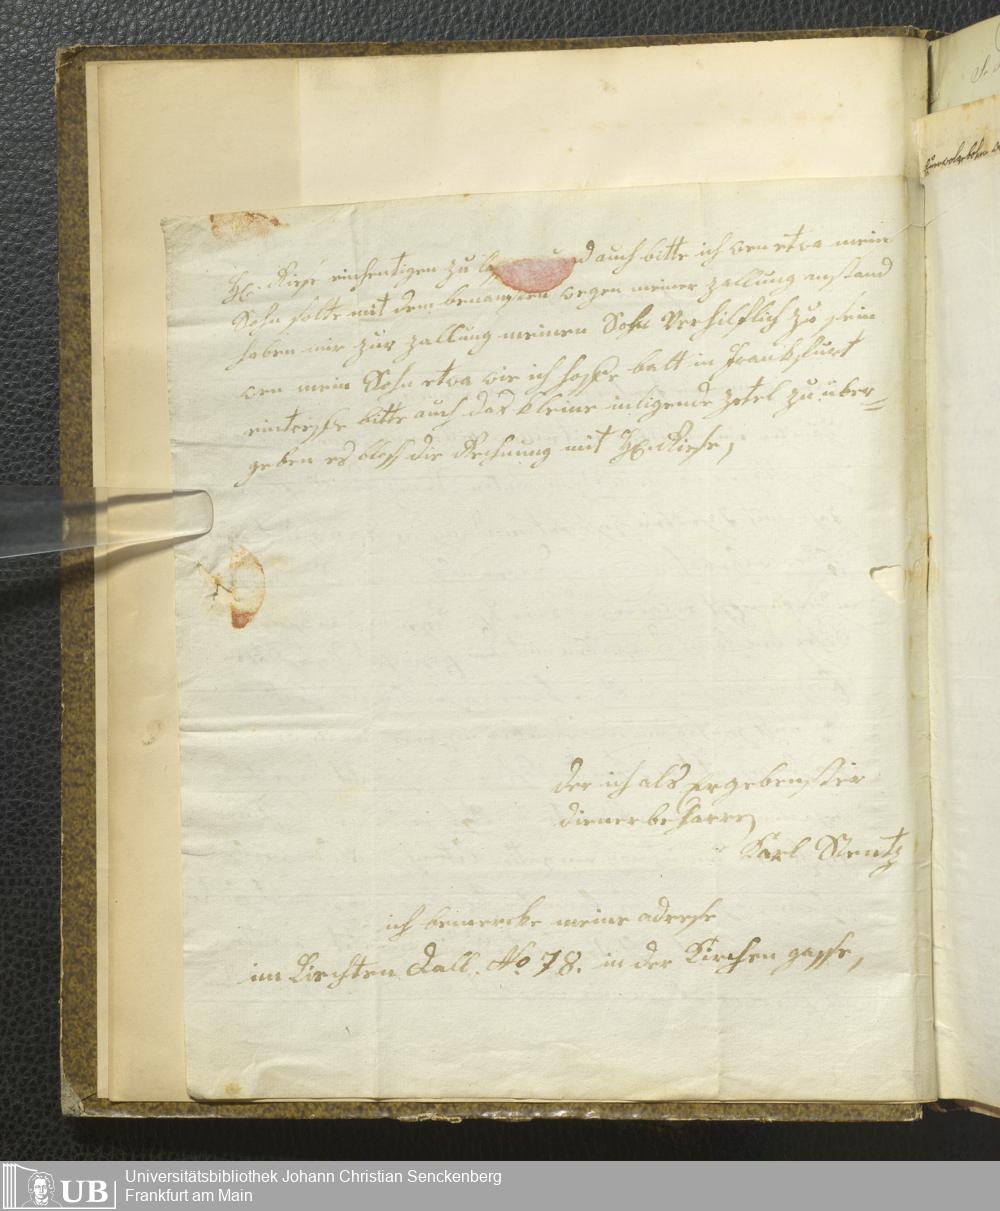 H. Riese einhentigen zu und auch bitte ich wen etwa mein
Sohn solte mit dem benanten wegen meiner zallung anstand
haben mir zur zallung meinen Sohn Verhilflich zu sein
wen mein Sohn etwa wie ich hoffe balt in Franckfurt
eintrefe bitte auch das kleine inligende zetel zu über=
geben es blos die Rechnung mit H. Riese,
der ich als Ergebenster
diener beharre
Karl Stentz
ich bemercke meine adresse
im Liechten dall. No 78. in der Kirchen gasse,
Universitätsbibliothek Johann Christian Senckenberg
Frankfurt am Main
UB